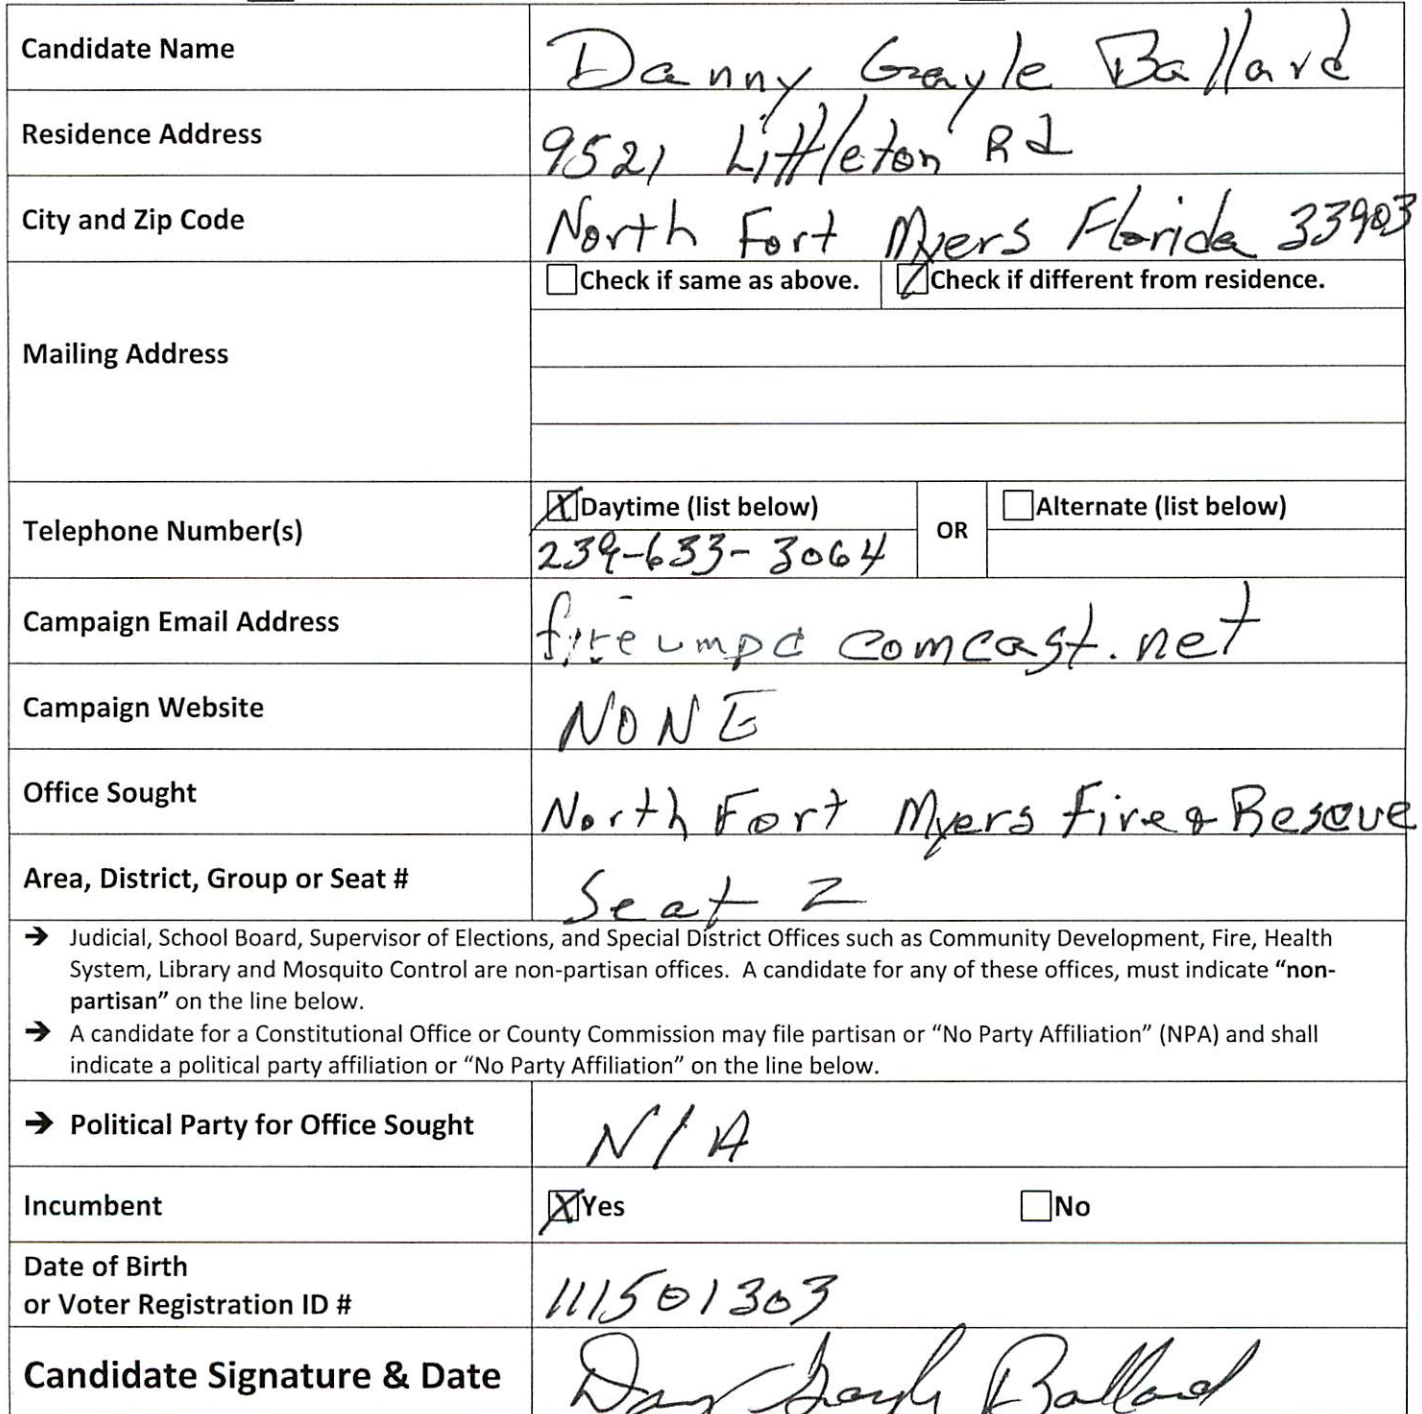 Candidate Name Danny Gayle Ballard
Residence Address 9521 Littleton Rd
City and Zip Code North Fort Myers Florida 33903
Check if same as above. Check if different from residence.
Mailing Address
Daytime (list below) OR Alternate (list below)
Telephone Number(s) 239-633-3064
Campaign Email Address comcast.net
Campaign Website NONE
Office Sought North Fort Myers Fire & Rescue
Area, District, Group or Seat # Seat 2
→ Judicial, School Board, Supervisor of Elections, and Special District Offices such as Community Development, Fire, Health
System, Library and Mosquito Control are non-partisan offices. A candidate for any of these offices, must indicate “non-
partisan” on the line below.
→ A candidate for a Constitutional Office or County Commission may file partisan or “No Party Affiliation” (NPA) and shall
indicate a political party affiliation or “No Party Affiliation” on the line below.
→ Political Party for Office Sought N/A
Incumbent Yes No
Date of Birth
or Voter Registration ID # 111501303
Candidate Signature & Date Danny Gayle Ballard